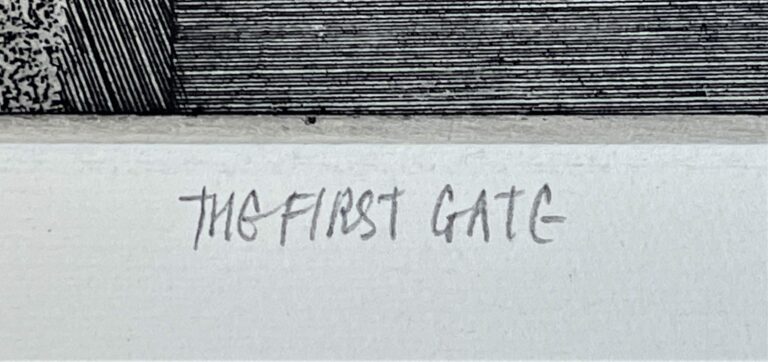 THE FIRST GATE